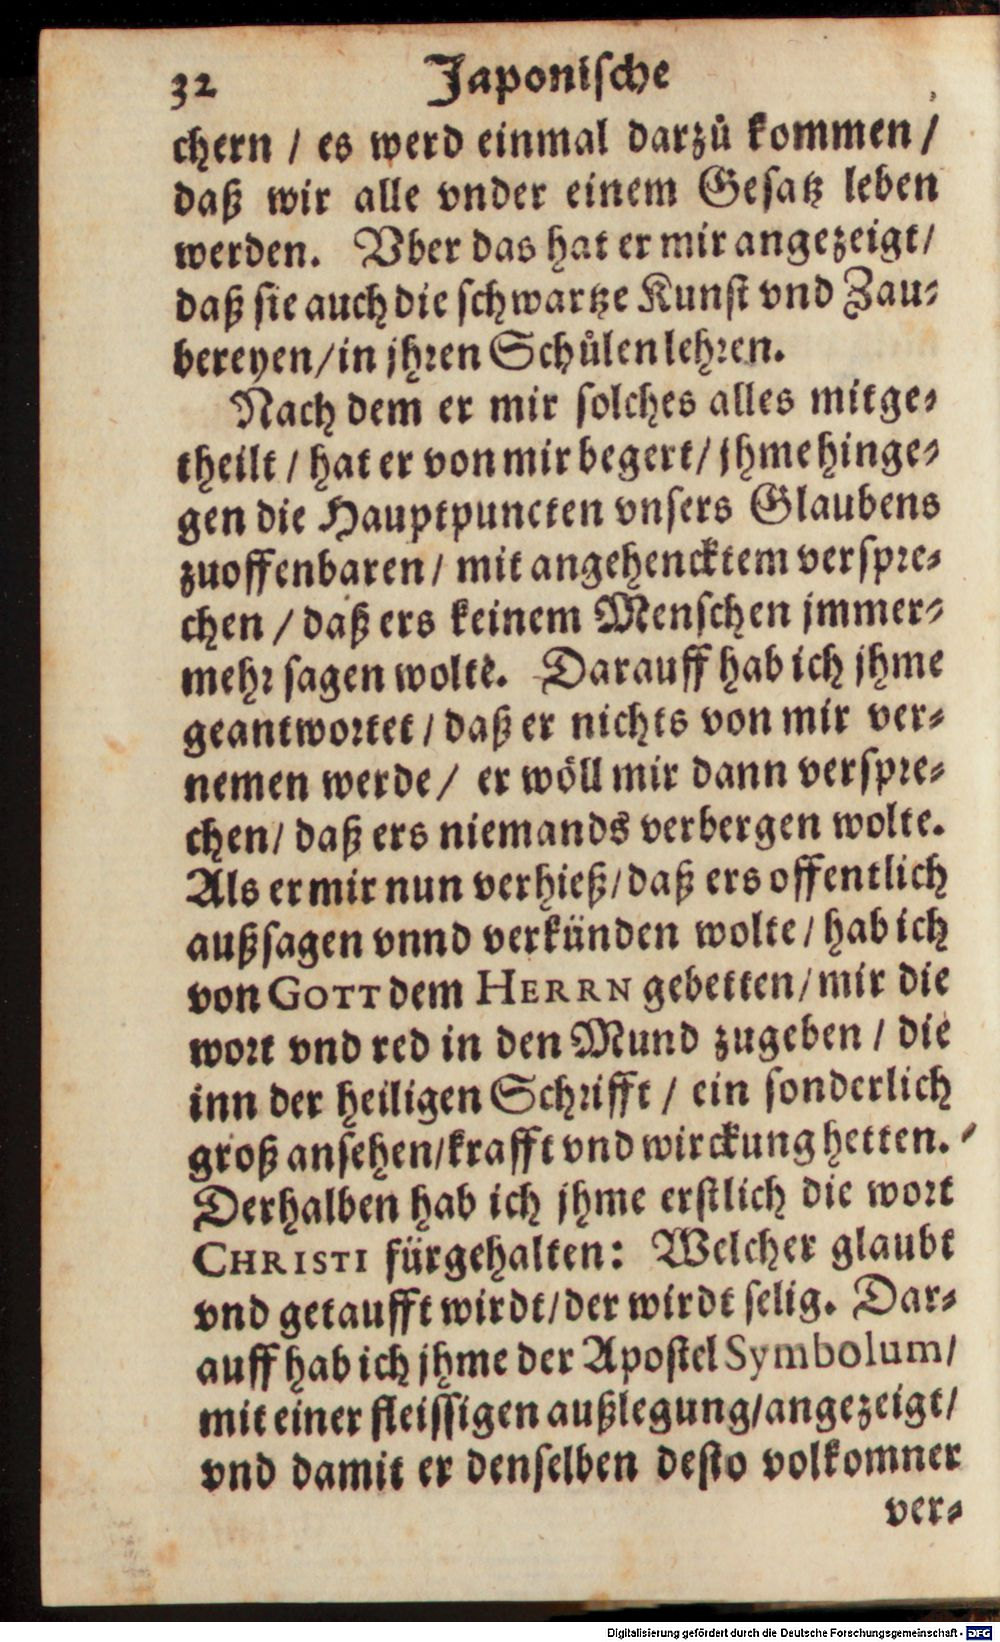 32 Japonische
chern / es werd einmal darzů kommen /
daß wir alle vnder einem Gesatz leben
werden. Vber das hat er mir angezeigt /
daß sie auch die schwartze Kunst vnd Zau-
bereyen / in jhren Schůlen lehren.
Nach dem er mir solches alles mitge-
theilt / hat er von mir begert / jhme hinge-
gen die Hauptpuncten vnsers Glaubens
zuoffenbaren / mit angehencktem verspre-
chen / daß ers keinem Menschen jmmer-
mehr sagen wolte. Darauff hab ich jhme
geantwortet / daß er nichts von mir ver-
nemen werde / er wöll mir dann verspre-
chen / daß ers niemands verbergen wolte.
Als er mir nun verhieß / daß ers offentlich
außsagen vnnd verkünden wolte / hab ich
von GOTT dem HERRN gebetten / mir die
wort vnd red in den Mund zugeben / die
inn der heiligen Schrifft / ein sonderlich
groß ansehen / krafft vnd wirckung hetten.
Derhalben hab ich jhme erstlich die wort
CHRISTI fürgehalten: Welcher glaubt
vnd getaufft wirdt / der wirdt selig. Dar-
auff hab ich jhme der Apostel Symbolum /
mit einer fleissigen außlegung / angezeigt /
vnd damit er denselben desto volkomner
ver-
Digitalisierung gefördert durch die Deutsche Forschungsgemeinschaft - DFG